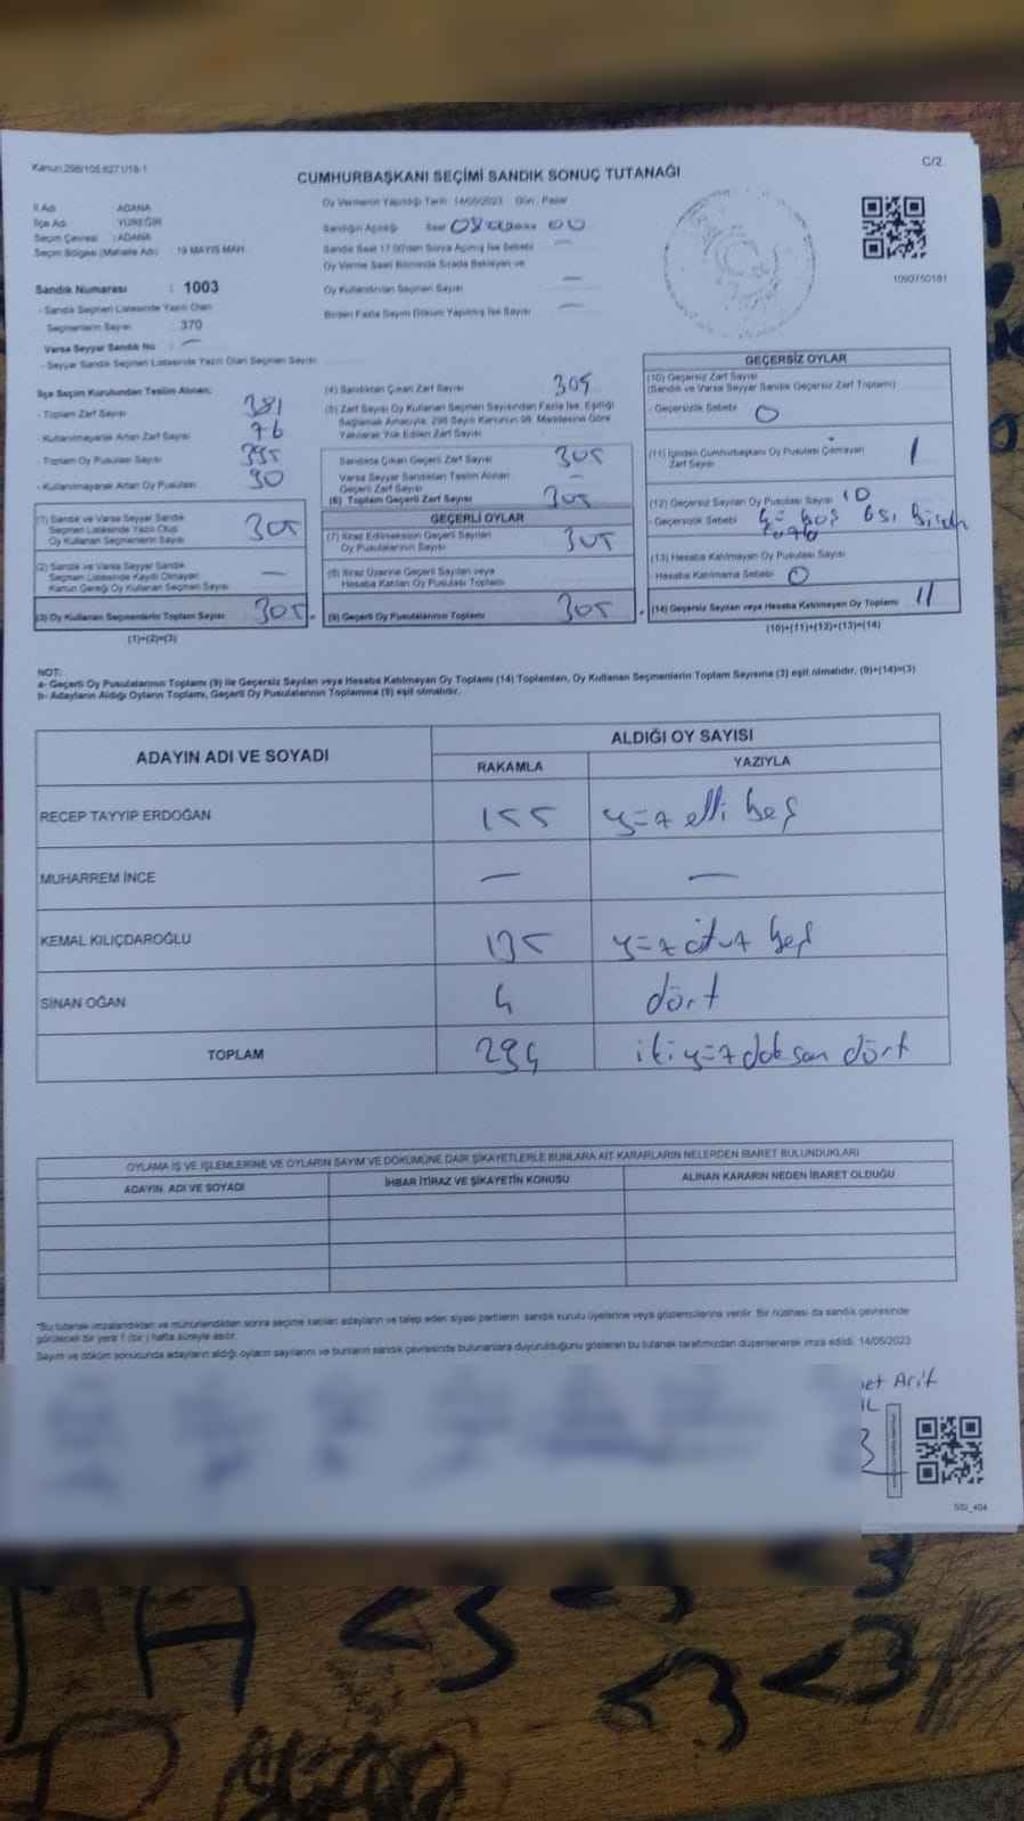 Kanun:298/105
C/2
CUMHURBAŞKANI SEÇİMİ SANDIK SONUÇ TUTANAĞI
İl Adı : ADANA
İlçe Adı : YÜREĞİR
Seçim Çevresi : ADANA
Seçim Bölgesi (Mahalle Adı) : 19 MAYIS MAH.
Oy Vermenin Yapıldığı Tarih : 14/05/2023 Gün : Pazar
Sandığın Açılışı Saat 08 00
Sandık Saat 17:00'den Sonra Açılmış İse Sebebi —
Oy Verme Saati Bitiminde Sırada Bekleyen ve
Oy Kullandırılan Seçmen Sayısı —
Birden Fazla Sayım Döküm Yapılmış İse Sayısı —
1090750181
Sandık Numarası : 1003
- Sandık Seçmen Listesinde Yazılı Olan
Seçmenlerin Sayısı : 370
Varsa Seyyar Sandık No : —
- Seyyar Sandık Seçmen Listesinde Yazılı Olan Seçmen Sayısı
İlçe Seçim Kurulundan Teslim Alınan;
- Toplam Zarf Sayısı 381
- Kullanılmayarak Artan Zarf Sayısı 76
- Toplam Oy Pusulası Sayısı 395
- Kullanılmayarak Artan Oy Pusulası 90
(1) Sandık ve Varsa Seyyar Sandık
Seçmen Listesinde Yazılı Olup
Oy Kullanan Seçmenlerin Sayısı 305
(2) Sandık ve Varsa Seyyar Sandık
Seçmen Listesinde Kayıtlı Olmayan
Kanun Gereği Oy Kullanan Seçmen Sayısı —
(3) Oy Kullanan Seçmenlerin Toplam Sayısı 305
(1)+(2)=(3)
(4) Sandıktan Çıkan Zarf Sayısı 305
(5) Zarf Sayısı Oy Kullanan Seçmen Sayısından Fazla İse, Eşitliği
Sağlamak Amacıyla, 298 Sayılı Kanunun 98. Maddesine Göre
Yakılarak Yok Edilen Zarf Sayısı
Sandıkta Çıkan Geçerli Zarf Sayısı 305
Varsa Seyyar Sandıktan Teslim Alınan
Geçerli Zarf Sayısı —
(6) Toplam Geçerli Zarf Sayısı 305
GEÇERLİ OYLAR
(7) İtiraz Edilmeksizin Geçerli Sayılan
Oy Pusulalarının Sayısı 305
(8) İtiraz Üzerine Geçerli Sayılan veya
Hesaba Katılan Oy Pusulası Toplamı
(9) Geçerli Oy Pusulalarının Toplamı 305
GEÇERSİZ OYLAR
(10) Geçersiz Zarf Sayısı
(Sandık ve Varsa Seyyar Sandık Geçersiz Zarf Toplamı)
- Geçersizlik Sebebi 0
(11) İçinden Cumhurbaşkanı Oy Pusulası Çıkmayan
Zarf Sayısı 1
(12) Geçersiz Sayılan Oy Pusulası Sayısı 10
- Geçersizlik Sebebi boş
(13) Hesaba Katılmayan Oy Pusulası Sayısı
- Hesaba Katılmama Sebebi 0
(14) Geçersiz Sayılan veya Hesaba Katılmayan Oy Toplamı 11
(10)+(11)+(12)+(13)=(14)
NOT:
a- Geçerli Oy Pusulalarının Toplamı (9) ile Geçersiz Sayılan veya Hesaba Katılmayan Oy Toplamı (14) Toplamları, Oy Kullanan Seçmenlerin Toplam Sayısına (3) eşit olmalıdır. (9)+(14)=(3)
b- Adayların Aldığı Oyların Toplamı, Geçerli Oy Pusulalarının Toplamına (9) eşit olmalıdır.
ADAYIN ADI VE SOYADI
ALDIĞI OY SAYISI
RAKAMLA YAZIYLA
RECEP TAYYİP ERDOĞAN 155 yüz elli beş
MUHARREM İNCE — —
KEMAL KILIÇDAROĞLU 135 yüz otuz beş
SİNAN OĞAN 4 dört
TOPLAM 294 iki yüz doksan dört
OYLAMA İŞ VE İŞLEMLERİNE VE OYLARIN SAYIM VE DÖKÜMÜNE DAİR ŞİKAYETLERLE BUNLARA AİT KARARLARIN NELERDEN İBARET BULUNDUKLARI
ADAYIN ADI VE SOYADI
İHBAR İTİRAZ VE ŞİKAYETİN KONUSU
ALINAN KARARIN NEDEN İBARET OLDUĞU
*Bu tutanak imzalandıktan ve mühürlendikten sonra seçime katılan adayların ve talep eden siyasi partilerin sandık kurulu üyelerine veya gözlemcilerine verilir. Bir nüshası da sandık çevresinde
görülecek bir yere 1 (bir) hafta süreyle asılır.
Sayım ve döküm sonucunda adayların aldığı oyların sayılarını ve bunların sandık çevresinde bulunanlara duyurulduğunu gösteren bu tutanak tarafımızdan düzenlenerek imza edildi. 14/05/2023
et Arif
IL
3
SSI_404
A <3
<3 <3